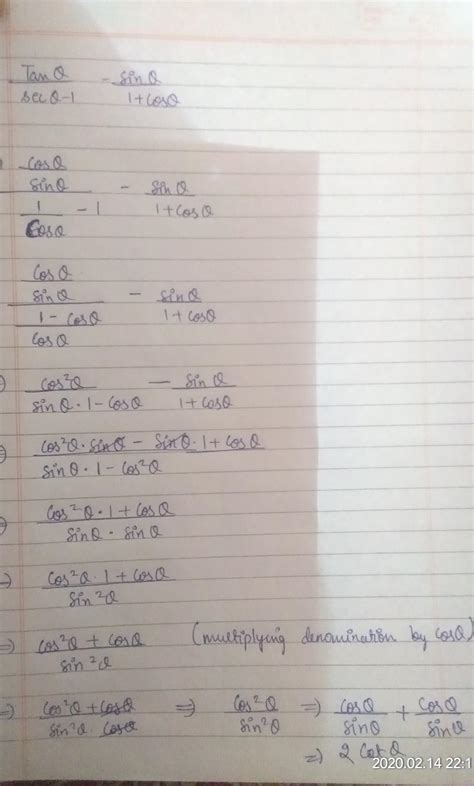 Tanθ / secθ-1 - sinθ / 1+cosθ
cosθ / sinθ / 1/cosθ - 1 - sinθ / 1+cosθ
cosθ / sinθ / 1-cosθ / cosθ - sinθ / 1+cosθ
cos²θ / sinθ·1-cosθ - sinθ / 1+cosθ
cos²θ·sinθ - sinθ·1+cosθ / sinθ·1-cos²θ
cos²θ·1+cosθ / sinθ·sinθ
⇒ cos²θ·1+cosθ / sin²θ
⇒ cos²θ+cosθ / sin²θ (multiplying denomination by cosθ)
⇒ cos²θ+cosθ / sin²θ·cosθ ⇒ cos²θ / sin²θ ⇒ cosθ / sinθ + cosθ / sinθ
⇒ 2 cotθ
2020.02.14 22:1